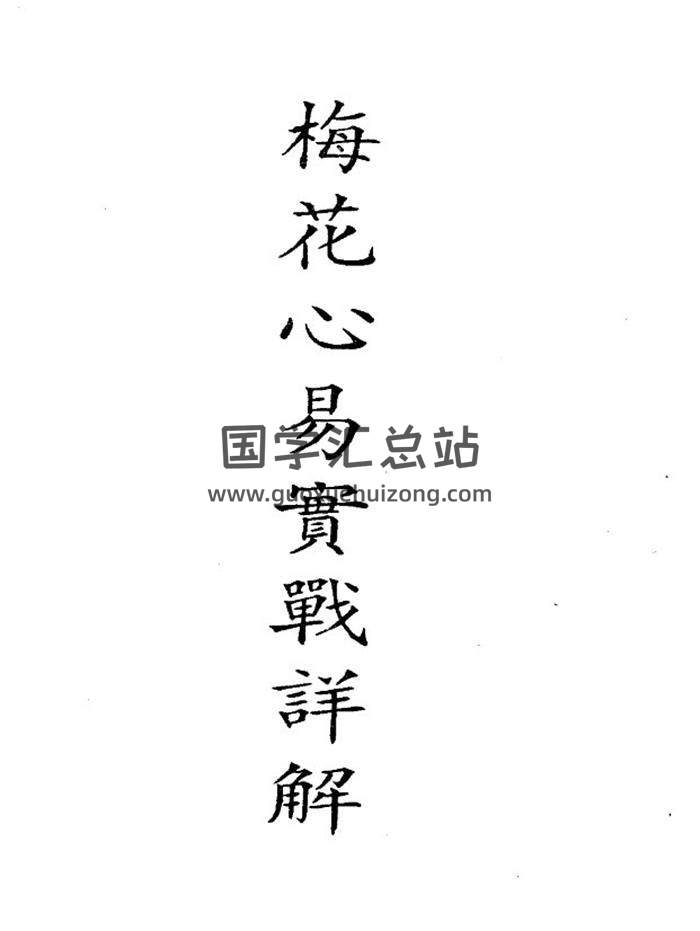 梅花心易實戰詳解
国学汇总站
www.guoxuehuizong.com